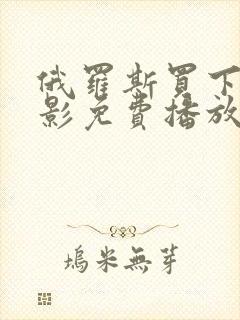 俄羅斯買下
影免費播放
塢米無芽